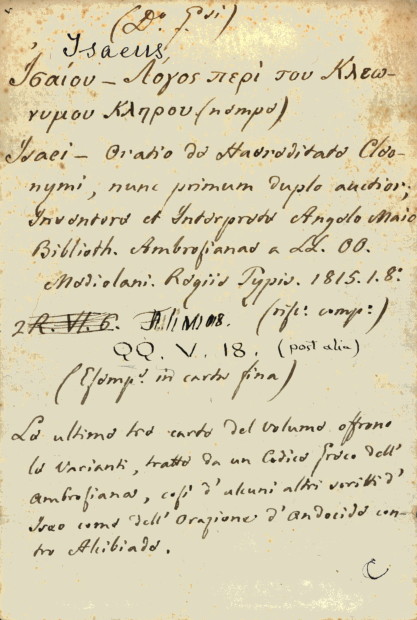 Isaeus
Ἰσαίου – Λόγος περὶ του Κλεω-
νυμου Κληρου (nempe)
Isaei – Oratio de Haereditate Cleo-
nymi, nunc primum duplo auctior;
Inventore et Interprete Angelo Maio
Biblioth. Ambrosianae a LL. OO.
Mediolani. Regiis Typis. 1815. 1. 8º
2 R. VI. 6.
QQ. V. 18. (post alia)
(Esemp.e in carta fina)
Le ultime tre carte del volume offrono
le varianti, tratte da un Codice Greco dell'
Ambrosiana, così d'alcuni altri scritti d'
Iseo come dell'Orazione d'Andocide con-
tro Alcibiade.